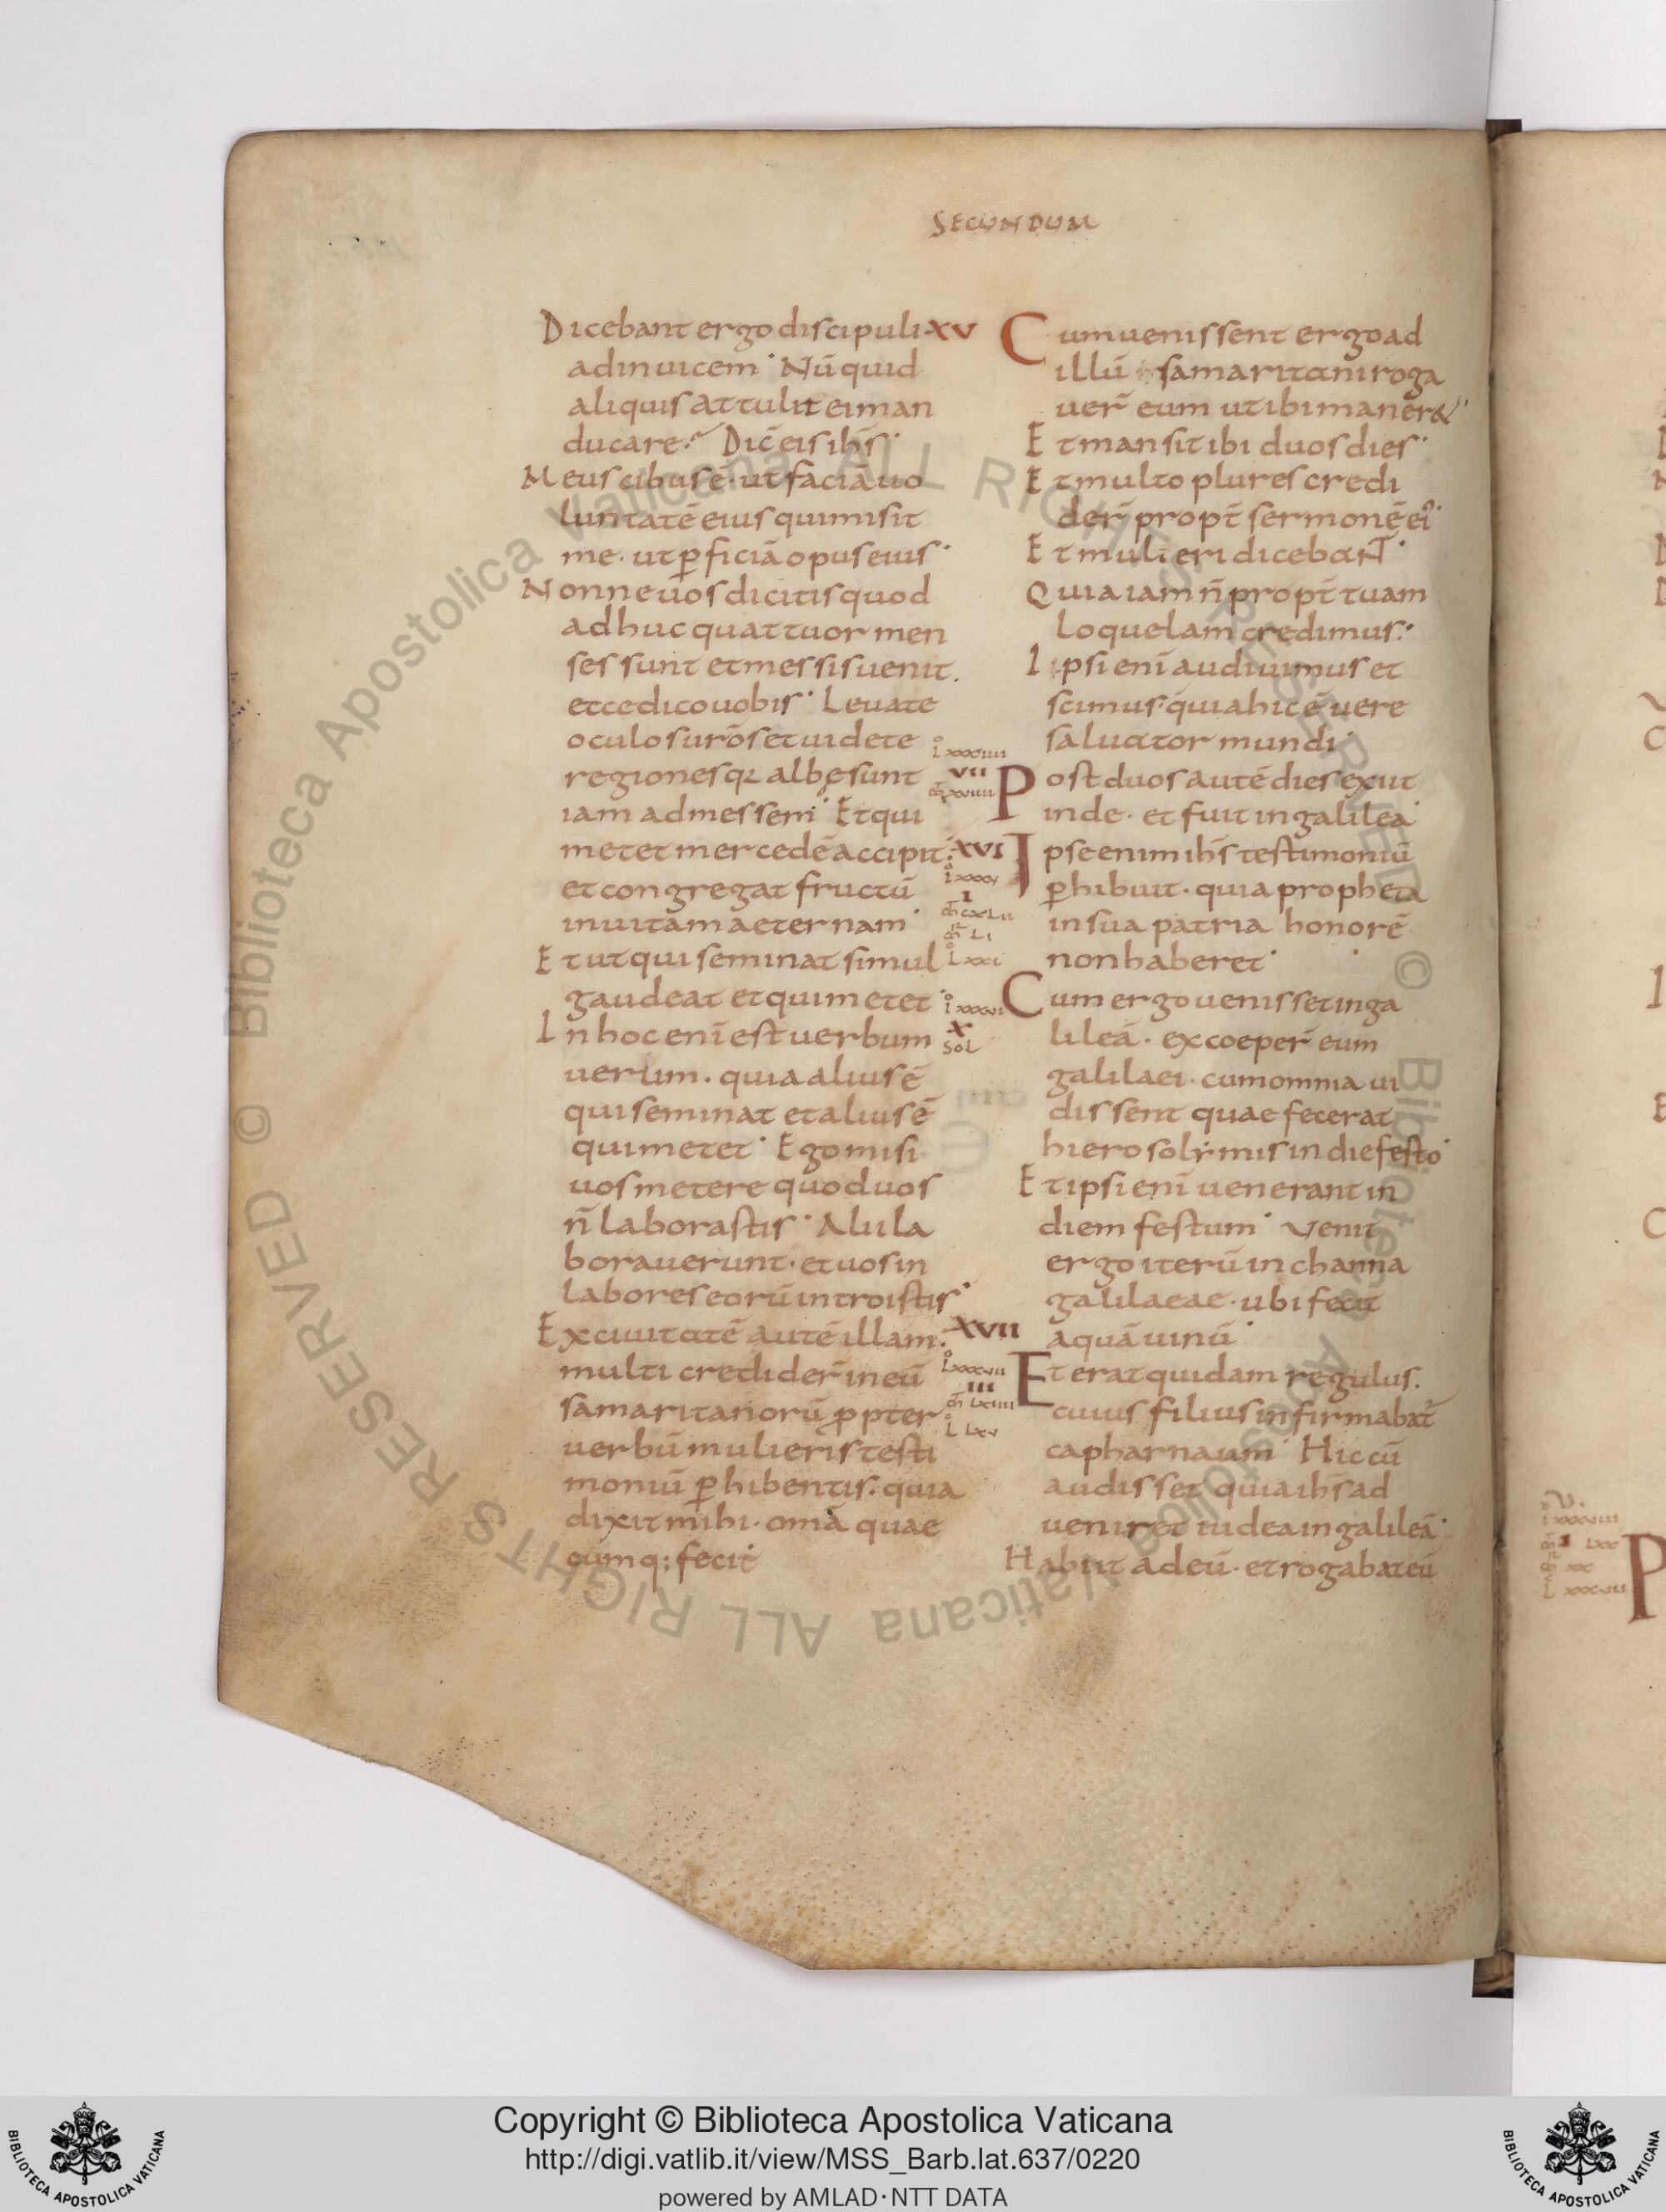 SECUNDUM
Dicebant ergo discipuli
adinuicem · Nū quid
aliquis attulit ei man
ducare? Dic̄ eis ih̄s ·
Meus cibus ē · ut faciā uo
luntatē eius qui misit
me · ut ꝑficiā opus eius ·
Nonne uos dicitis quod
adhuc quattuor men
ses sunt et messis uenit .
etce dico uobis · Leuate
oculos ur̄os et uidete
regiones qꝛ albę sunt
iam ad messem · Et qui
metet mercedē accipit ·
et congregat fructū
in uitam aeternam ·
Et ut qui seminat simul
gaudeat et qui metet ·
In hoc enī est uerbum
uerum . quia alius ē
qui seminat et alius ē
qui metet · Ego misi
uos metere quod uos
n̄ laborastis · Alii la
borauerunt · et uos in
labores eorū introistis ·
Ex ciuitatē autē illam .
multi credider̄ in eū
samaritanorū ꝓpter
uerbū mulieris testi
moniū ꝑhibentis . quia
dixit mihi · om̄a quae
cumq; feci
XV
Cum uenissent ergo ad
illū samaritani roga
uer̄ eum ut ibi maner& ·
Et mansit ibi duos dies ·
Et multo plures credi
der̄ propt̄ sermonē ei᾽ ·
Et mulieri dicebaNT ·
Quia iam n̄ propt̄ tuam
loquelam credimus ·
Ipsi enī audiuimus et
scimus quia hic ē uere
saluator mundi ·
l xxxiiii
VII
m̄ xviiii
Post duos autē dies exiit
inde · et fuit in galilea ·
XVI
l xxxv
I
m̄ cxlii
m̄r li
l xxi
Ipse enim ih̄s testimoniū
ꝑhibuit · quia propheta
in sua patria honorē
non haberet ·
l xxxvi
X
sol
Cum ergo uenisset in ga
lileā · excoeper̄ eum
galilaei · cum omnia ui
dissent quae fecerat
hierosolymis in die festo ·
Et ipsi enī uenerant in
diem festum · Venit
ergo iterū in channa
galilaeae · ubi fecit
aquā uinū ·
XVII
l xxxvii
III
m̄ lxiiii
l lxv
Et erat quidam regulus .
cuius filius infirmabat᷑
capharnaum · Hic cū
audisset quia ih̄s ad
ueniret iudea in galileā ·
Habiit ad eū · et rogabat eū
Copyright © Biblioteca Apostolica Vaticana
http://digi.vatlib.it/view/MSS_Barb.lat.637/0220
powered by AMLAD·NTT DATA
BIBLIOTECA APOSTOLICA VATICANA
BIBLIOTECA APOSTOLICA VATICANA
© Biblioteca Apostolica Vaticana ALL RIGHTS RESERVED
© Biblioteca Apostolica Vaticana ALL RIGHTS RESERVED